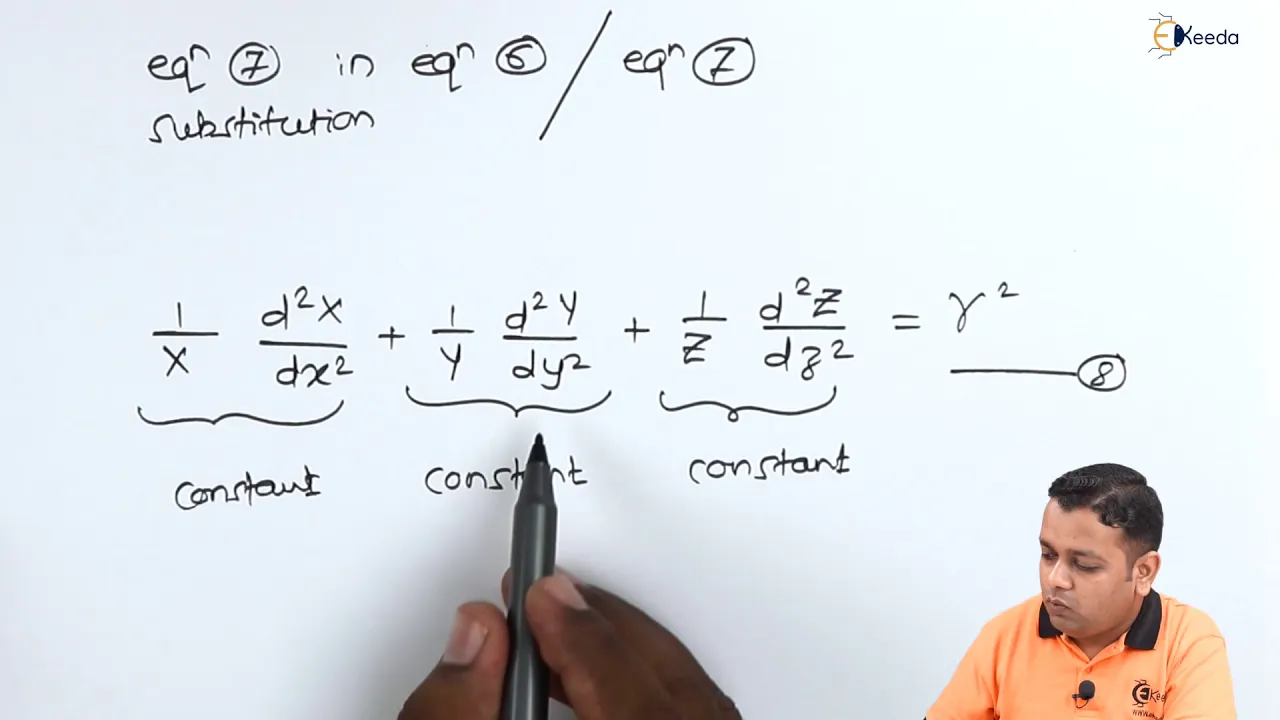 EKeeda
eqⁿ ⑦ in eqⁿ ⑥ / eqⁿ ⑦
substitution
1/X d²X/dx² + 1/Y d²Y/dy² + 1/Z d²Z/dz² = γ²
⑧
constant constant constant
EKee